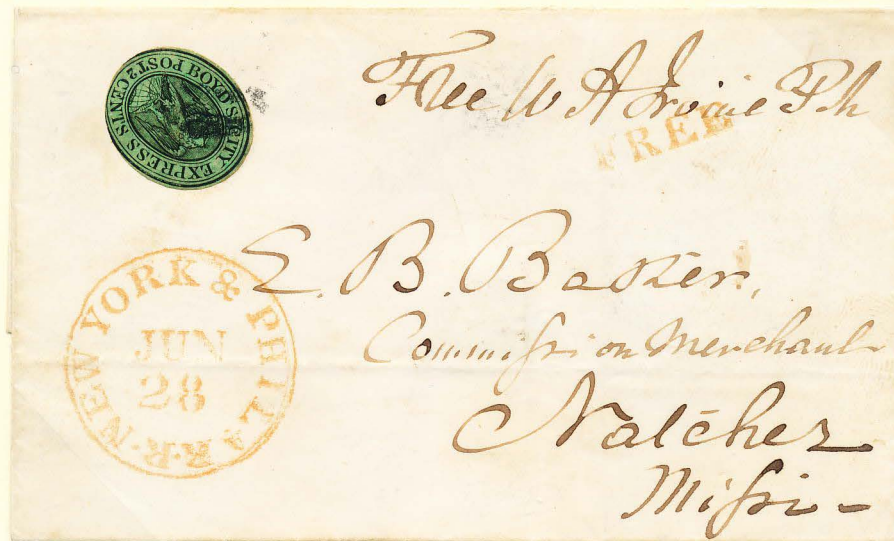 BOYD'S CITY EXPRESS POST 2 CENTS
Free W A Irvine P.M
FREE
NEW YORK & PHILA R.R.
JUN
28
E. B. Baker,
Commission Merchant
Natchez
Missi -